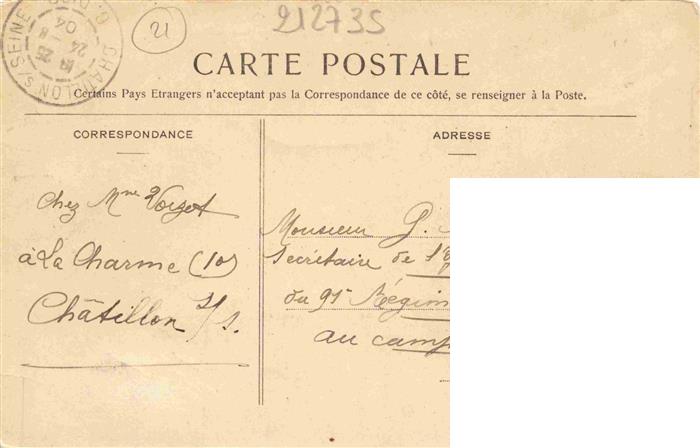 212735
21
CHALON S/SEINE
24 -8
04
CARTE POSTALE
Certains Pays Etrangers n'acceptant pas la Correspondance de ce côté, se renseigner à la Poste.
CORRESPONDANCE
chez Mme Voizot
à La Charme (10)
Châtillon s/s.
ADRESSE
Monsieur G.
Secrétaire de l'
du 91e Régim
au camp